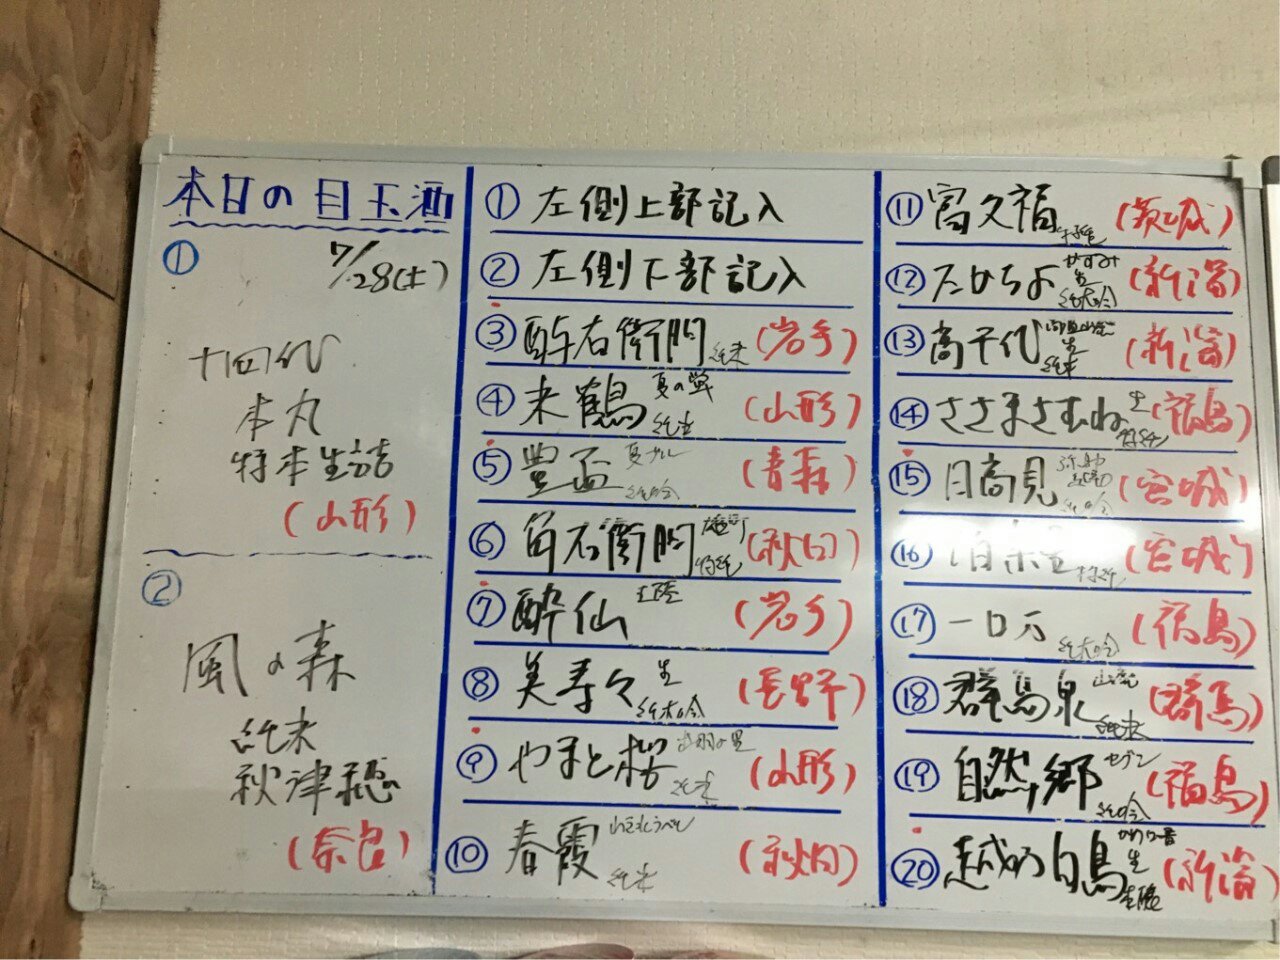 本日の目玉酒
① 7/28(土)
十四代
本丸
特本生詰
(山形)
②
風の森
純米
秋津穂
(奈良)
① 左側上部記入
② 左側下部記入
③ 酔右衛門 純米 (岩手)
④ 米鶴 夏の 純吟 (山形)
⑤ 豊盃 夏 純吟 (青森)
⑥ 角右衛門 雄町 特純 (秋田)
⑦ 酔仙 (岩手)
⑧ 美寿々 生 純大吟 (長野)
⑨ やまと桜 出羽の里 純米 (山形)
⑩ 春霞 純米 (秋田)
⑪ 富久福 特純 (茨城)
⑫ たかちよ かすみ 生 純大吟 (新潟)
⑬ 高千代 生 純米 (新潟)
⑭ ささまさむね 生 特純 (福島)
⑮ 日高見 弥助 純吟 (宮城)
⑯ 伯楽星 特純 (宮城)
⑰ 一ロ万 純大吟 (福島)
⑱ 群馬泉 山廃 純米 (群馬)
⑲ 自然郷 セブン 純吟 (福島)
⑳ 越の白鳥 生 (新潟)